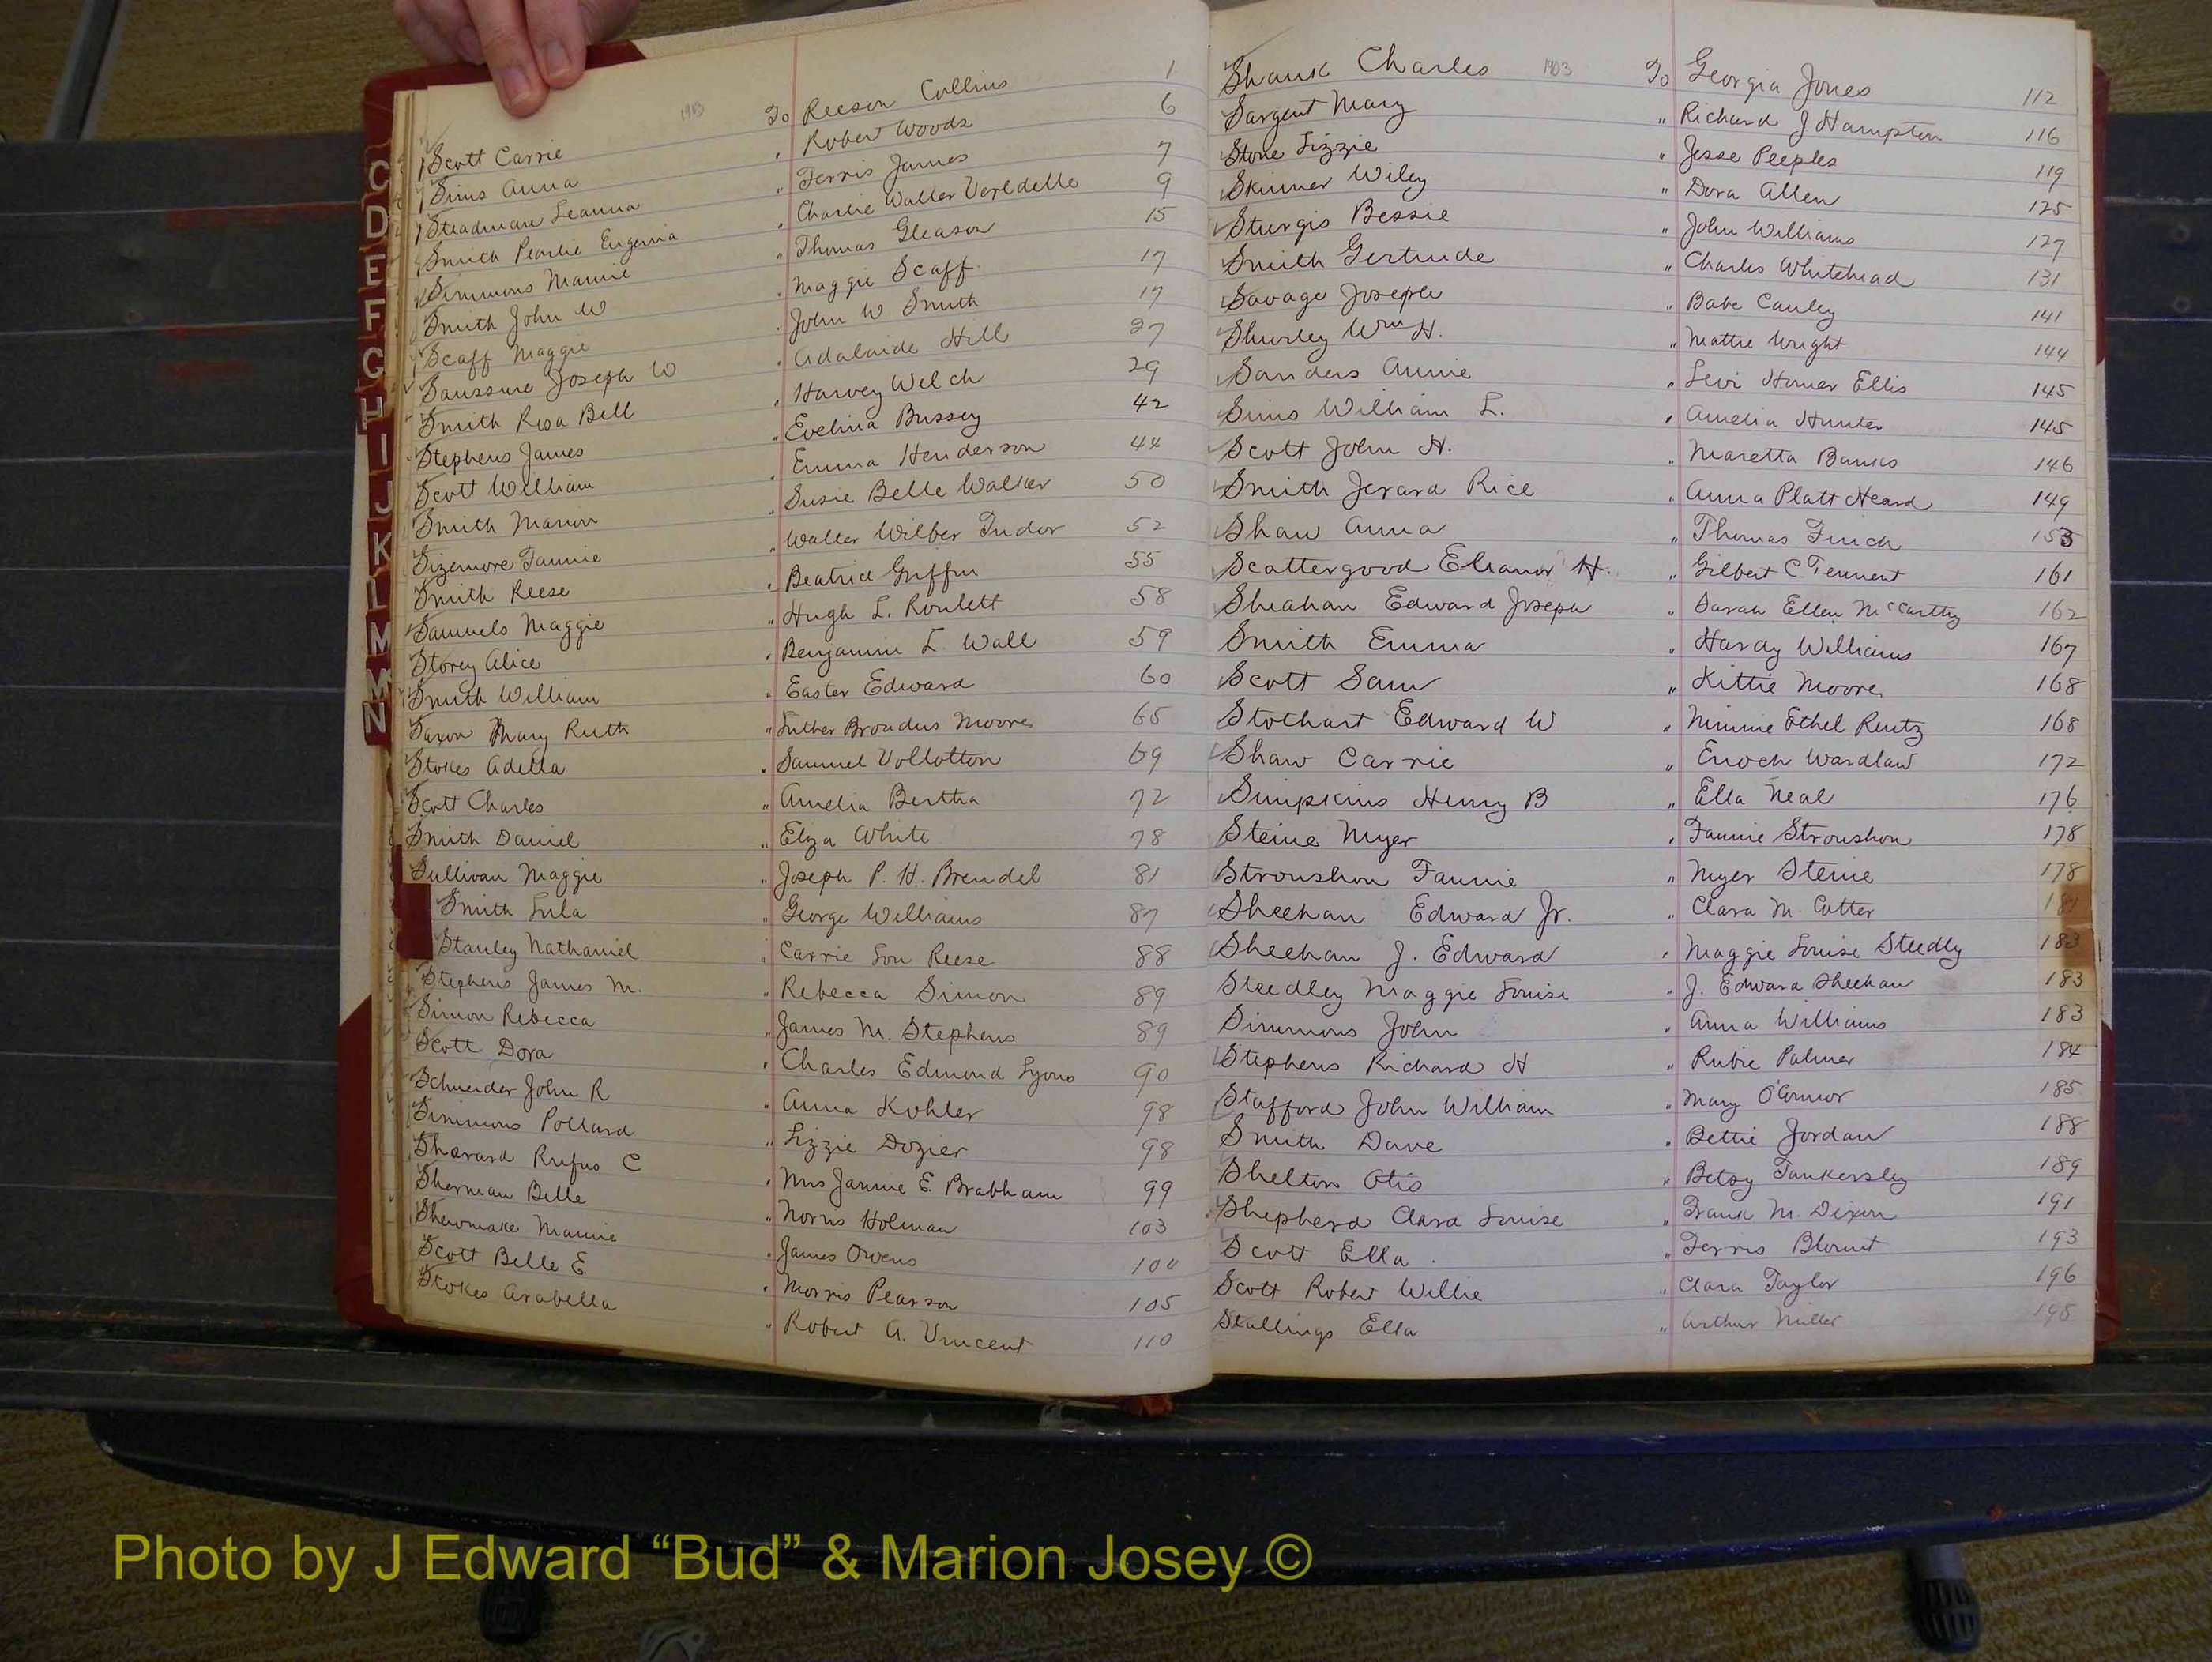 1903
Scott Carrie To Reeson Collins 1
Sims Anna " Robert Woods 6
Steadman Leanna " Ferris James 7
Smith Pearlie Eugenia " Charlie Walter Verldelle 9
Simmons Mamie " Thomas Gleason 15
Smith John W " Maggie Scaff 17
Scaff Maggie " John W Smith 17
Saussure Joseph W " Adalaide Hill 27
Smith Rosa Bell " Harvey Welch 29
Stephens James " Evelina Bussey 42
Scott William " Emma Henderson 44
Smith Marion " Susie Belle Walker 50
Sizemore Fannie " Walter Wilber Tudor 52
Smith Reese " Beatrice Griffin 55
Samuels Maggie " Hugh L. Roulett 58
Storey Alice " Benjamin L. Wall 59
Smith William " Easter Edward 60
Saxon Mary Ruth " Luther Broadus Moore 65
Stokes Adella " Samuel Vollotton 69
Scott Charles " Amelia Bertha 72
Smith Daniel " Eliza White 78
Sullivan Maggie " Joseph P. H. Brendel 81
Smith Lula " George Williams 87
Stanley Nathaniel " Carrie Lou Reese 88
Stephens James M. " Rebecca Simon 89
Simon Rebecca " James M. Stephens 89
Scott Dora " Charles Edmond Lyons 90
Schneider John R " Anna Kohler 98
Simmons Pollard " Lizzie Dozier 98
Sharard Rufus C " Mrs Jannie E. Brabham 99
Sherman Belle " Norris Holman 103
Shewmake Mamie " James Owens 104
Scott Belle E. " Morris Pearson 105
Stokes Arabella " Robert A. Vincent 110
Shank Charles 1903 To Georgia Jones 112
Sargent Mary " Richard J Hampton 116
Stone Lizzie " Jesse Peeples 119
Skinner Wiley " Dora Allen 125
Sturgis Bessie " John Williams 127
Smith Gertrude " Charles Whitehead 131
Savage Joseph " Babe Cauley 141
Shurley Wm H. " Mattie Wright 144
Sanders Annie " Levi Homer Ellis 145
Sims William L. " Amelia Hunter 145
Scott John H. " Maretta Banks 146
Smith Jerard Rice " Anna Platt Heard 149
Shaw Anna " Thomas Finch 153
Scattergood Eleanor H. " Gilbert C Tennent 161
Sheahan Edward Joseph " Sarah Ellen McCarthy 162
Smith Emma " Hardy Williams 167
Scott Sam " Kittie Moore 168
Stothart Edward W " Minnie Ethel Rentz 168
Shaw Carrie " Enoch Wardlaw 172
Simpkins Henry B " Ella Neal 176
Steine Myer " Fannie Stroushon 178
Stroushon Fannie " Myer Steine 178
Sheehan Edward Jr. " Clara M. Cotter 181
Sheehan J. Edward " Maggie Louise Steedly 183
Steedley Maggie Louise " J. Edward Sheehan 183
Simmons John " Anna Williams 183
Stephens Richard H " Rubie Palmer 184
Stafford John William " Mary O'Connor 185
Smith Dave " Bettie Jordan 188
Shelton Otis " Betsy Tankersley 189
Shepherd Clara Louise " Frank M. Dixon 191
Scott Ella " Ferris Blount 193
Scott Robert Willie " Clara Taylor 196
Stallings Ella " Arthur Miller 198
C
D
E
F
G
H
I
J
K
L
M
M
N
Photo by J Edward “Bud” & Marion Josey ©